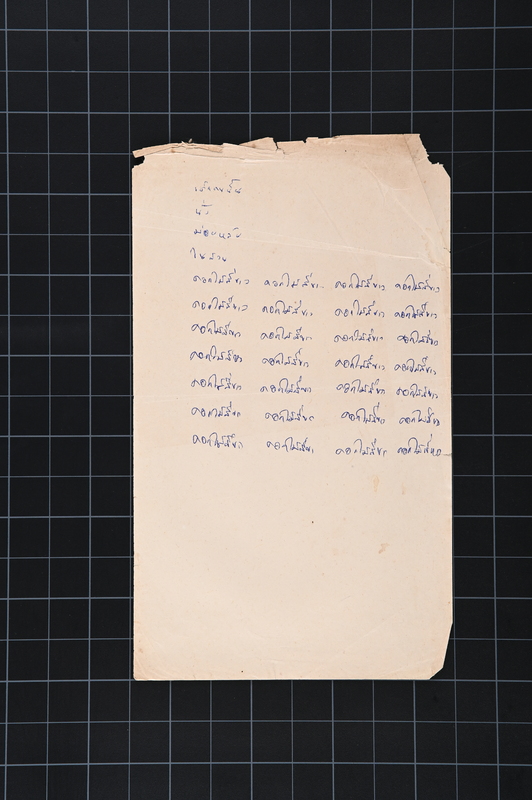 เด็กคนนั้น
นั่ง
ม่อยหลับ
ในสวน
ดอกไม้สีขาว ดอกไม้สีขาว ดอกไม้สีขาว ดอกไม้สีขาว
ดอกไม้สีขาว ดอกไม้สีขาว ดอกไม้สีขาว ดอกไม้สีขาว
ดอกไม้สีขาว ดอกไม้สีขาว ดอกไม้สีขาว ดอกไม้สีขาว
ดอกไม้สีขาว ดอกไม้สีขาว ดอกไม้สีขาว ดอกไม้สีขาว
ดอกไม้สีขาว ดอกไม้สีขาว ดอกไม้สีขาว ดอกไม้สีขาว
ดอกไม้สีขาว ดอกไม้สีขาว ดอกไม้สีขาว ดอกไม้สีขาว
ดอกไม้สีขาว ดอกไม้สีขาว ดอกไม้สีขาว ดอกไม้สีขาว